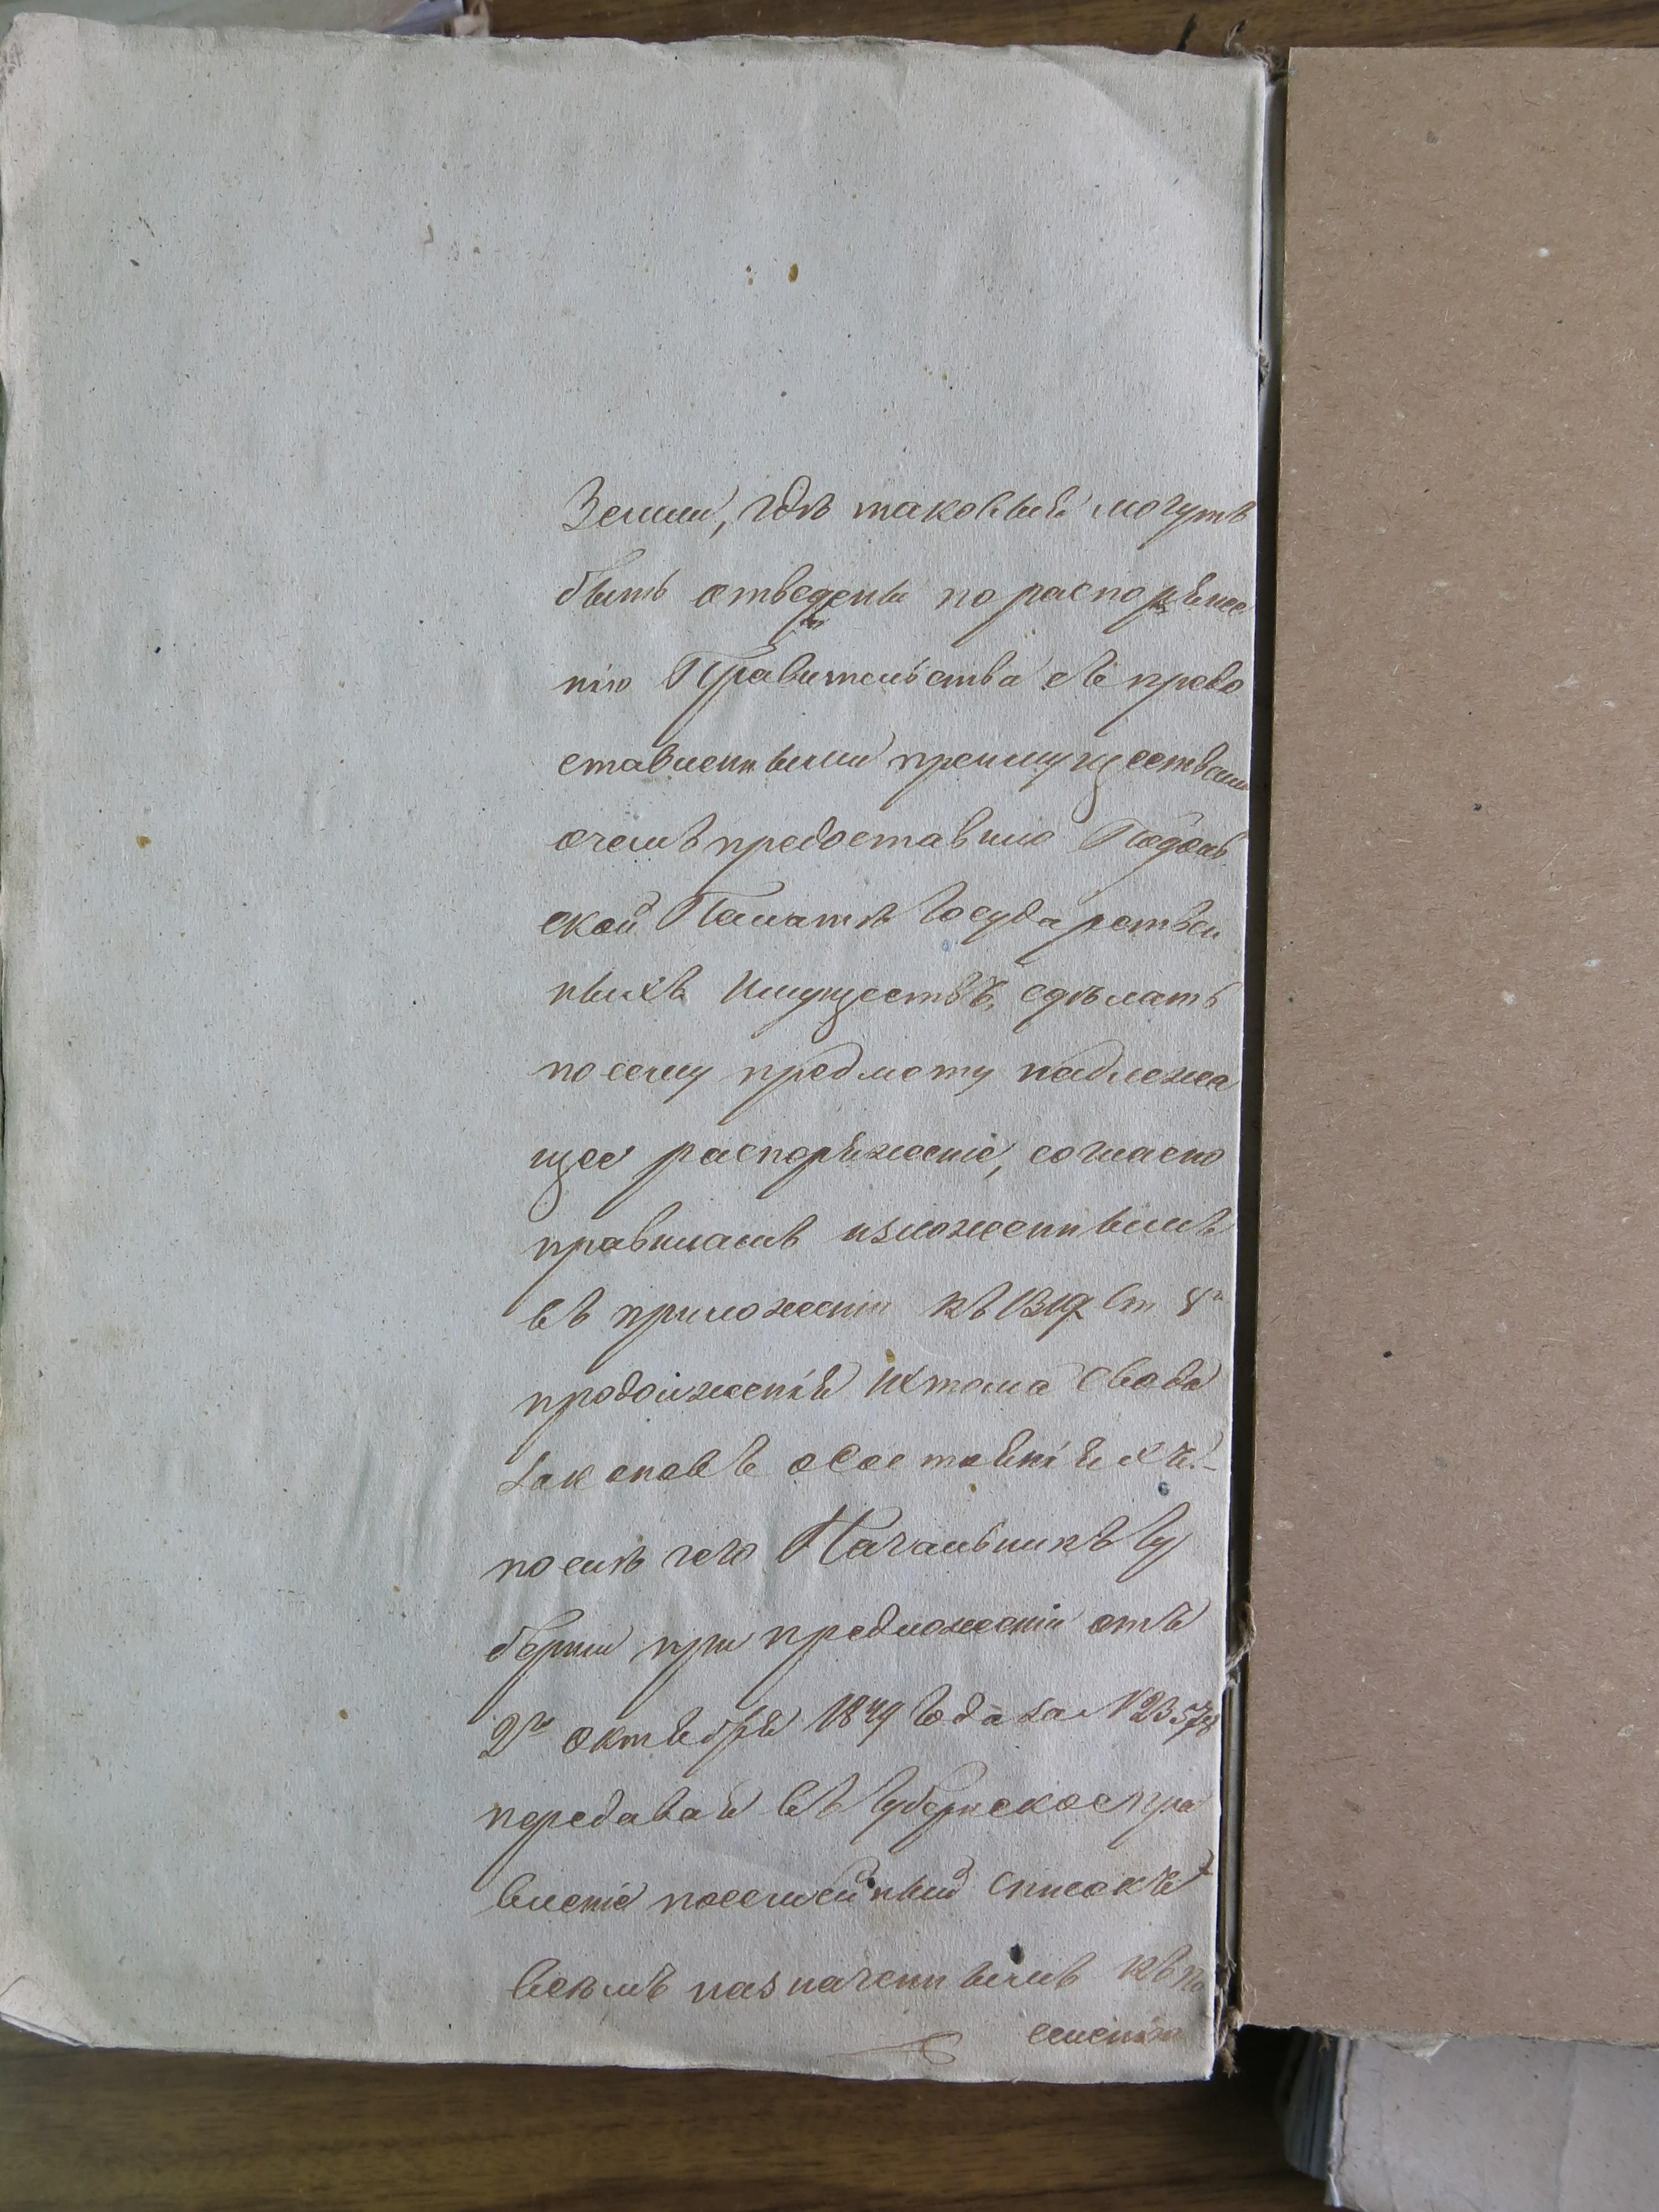 Земли, гдѣ таковыя могутъ
быть отведены по распоряже
нію Правительства съ предо
ставленными преимуществами
о чемъ предоставило Подоль
ской Палатѣ Государствен
ныхъ Имуществъ, сдѣлать
по сему предмету надлежа
щее распоряженіе, согласно
правиламъ изложеннымъ
въ приложеніи къ 1319 Ст
продолженія IX тома Свода
Законовъ о Состояніяхъ.
послѣ чего Начальникъ Гу
берніи при предложеніи отъ
2го Октября 1849 Года за № 23578
передавая въ Губернское пра
вленіе посемейный списокъ
всѣмъ назначеннымъ къ по
селенію